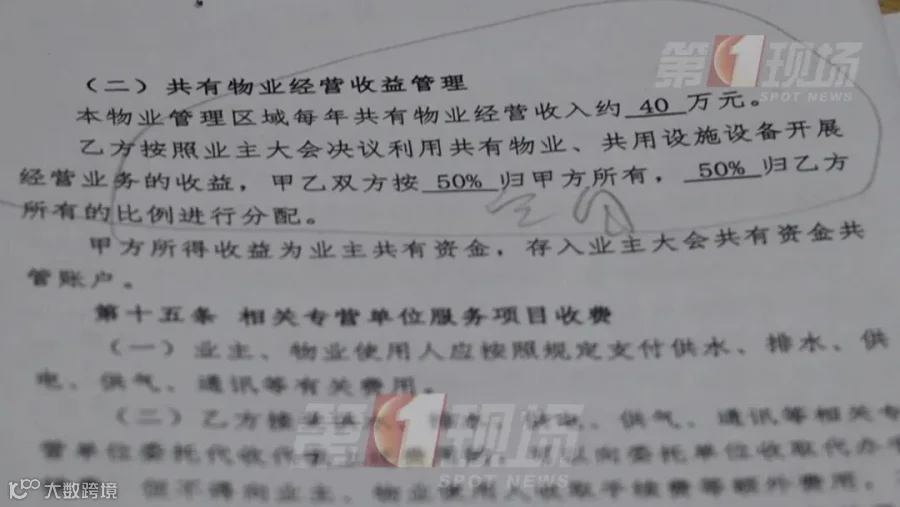 第1现场
SPOT NEWS
（二）共有物业经营收益管理
本物业管理区域每年共有物业经营收入约 40 万元。
乙方按照业主大会决议利用共有物业、共用设施设备开展
经营业务的收益，甲乙双方按 50% 归甲方所有， 50% 归乙方
所有的比例进行分配。
甲方所得收益为业主共有资金，存入业主大会共有资金共
管账户。
第十五条 相关专营单位服务项目收费
（一）业主、物业使用人应按照规定支付供水、排水、供
电、供气、通讯等有关费用。
（二）乙方接 排水、供电、供气、通讯等相关专
营单位委托代收代 可以向委托单位收取代办手
但不得向业主、物业使用人收取手续费等额外费用。
第1现场
SPOT NEWS
大数跨境